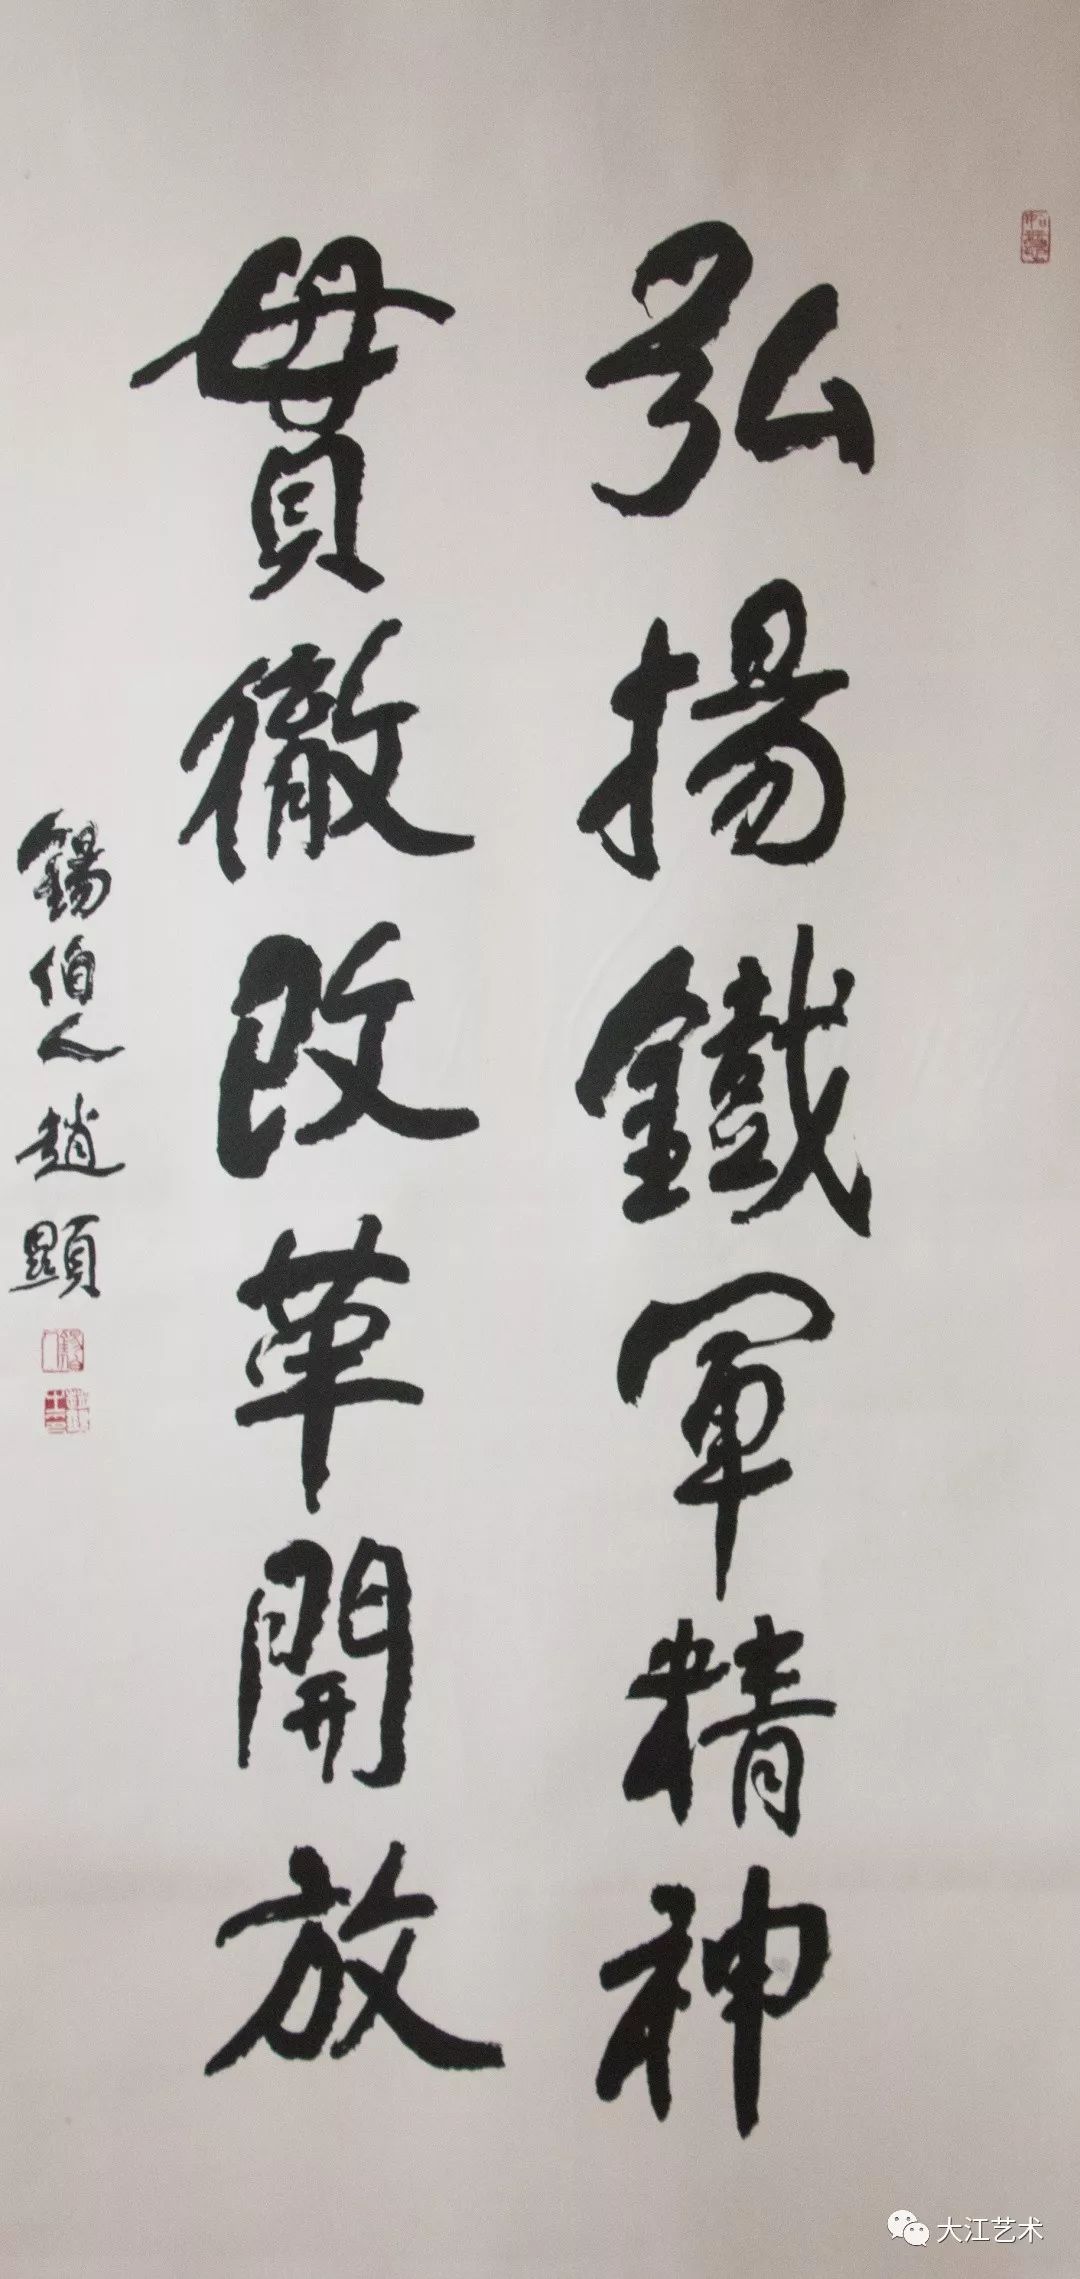 弘揚鐵軍精神
貫徹改革開放
錫伯人趙顯
大江艺术